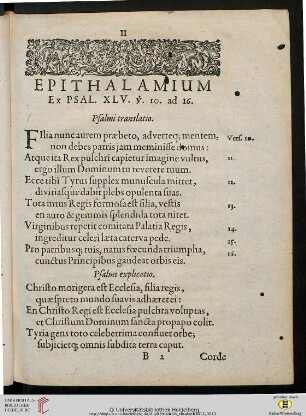 II
EPITHALAMIUM
Ex PSAL. XLV. ℣. 10. ad 16.
Psalmi translatio.
Filia nunc aurem præbeto, adverteq; mentem, Vers. 10.
non debes patris jam meminisse domus:
Atque ita Rex pulchri capietur imagine vultus, 11.
ergo illum Dominum tu reverere tuum.
Ecce tibi Tyrus supplex munuscula mittet, 12.
divitiasque dabit plebs opulenta suas.
Tota intus Regis formosa est filia, vestis 13.
en auro & gemmis splendida tota nitet.
Virginibus repetit comitata Palatia Regis, 14.
ingreditur celeri læta caterva pede. 15.
Pro patribusq; tuis, natus fœcunda triumpha, 16.
cunctus Principibus gaudeat orbis eis.
Psalmi explicatio.
Christo morigera est Ecclesia, filia regis,
quæ spreto mundo suavis adhæret ei:
En Christo Regi est Ecclesia pulchra voluptas,
et Christum Dominum sancta propago colit.
Tyria gens toto celeberrima constuet orbe,
subjicietq; omnis subdita terra caput.
B 2 Corde
Universitätsbibliothek Heidelberg